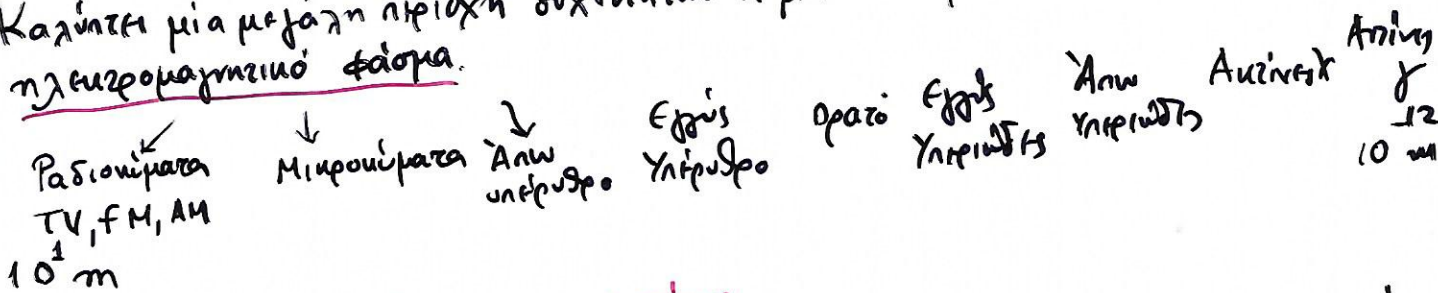 Καλύπτει μία μεγάλη περιοχή
ηλεκτρομαγνητικό φάσμα.
Ραδιοκύματα Μικροκύματα Άπω υπέρυθρο Εγγύς Υπέρυθρο Ορατό Εγγύς Υπεριώδες Άπω Υπεριώδες Ακτίνες Χ Ακτίνες γ
TV, FM, AM
10^1 m 10^-12 m